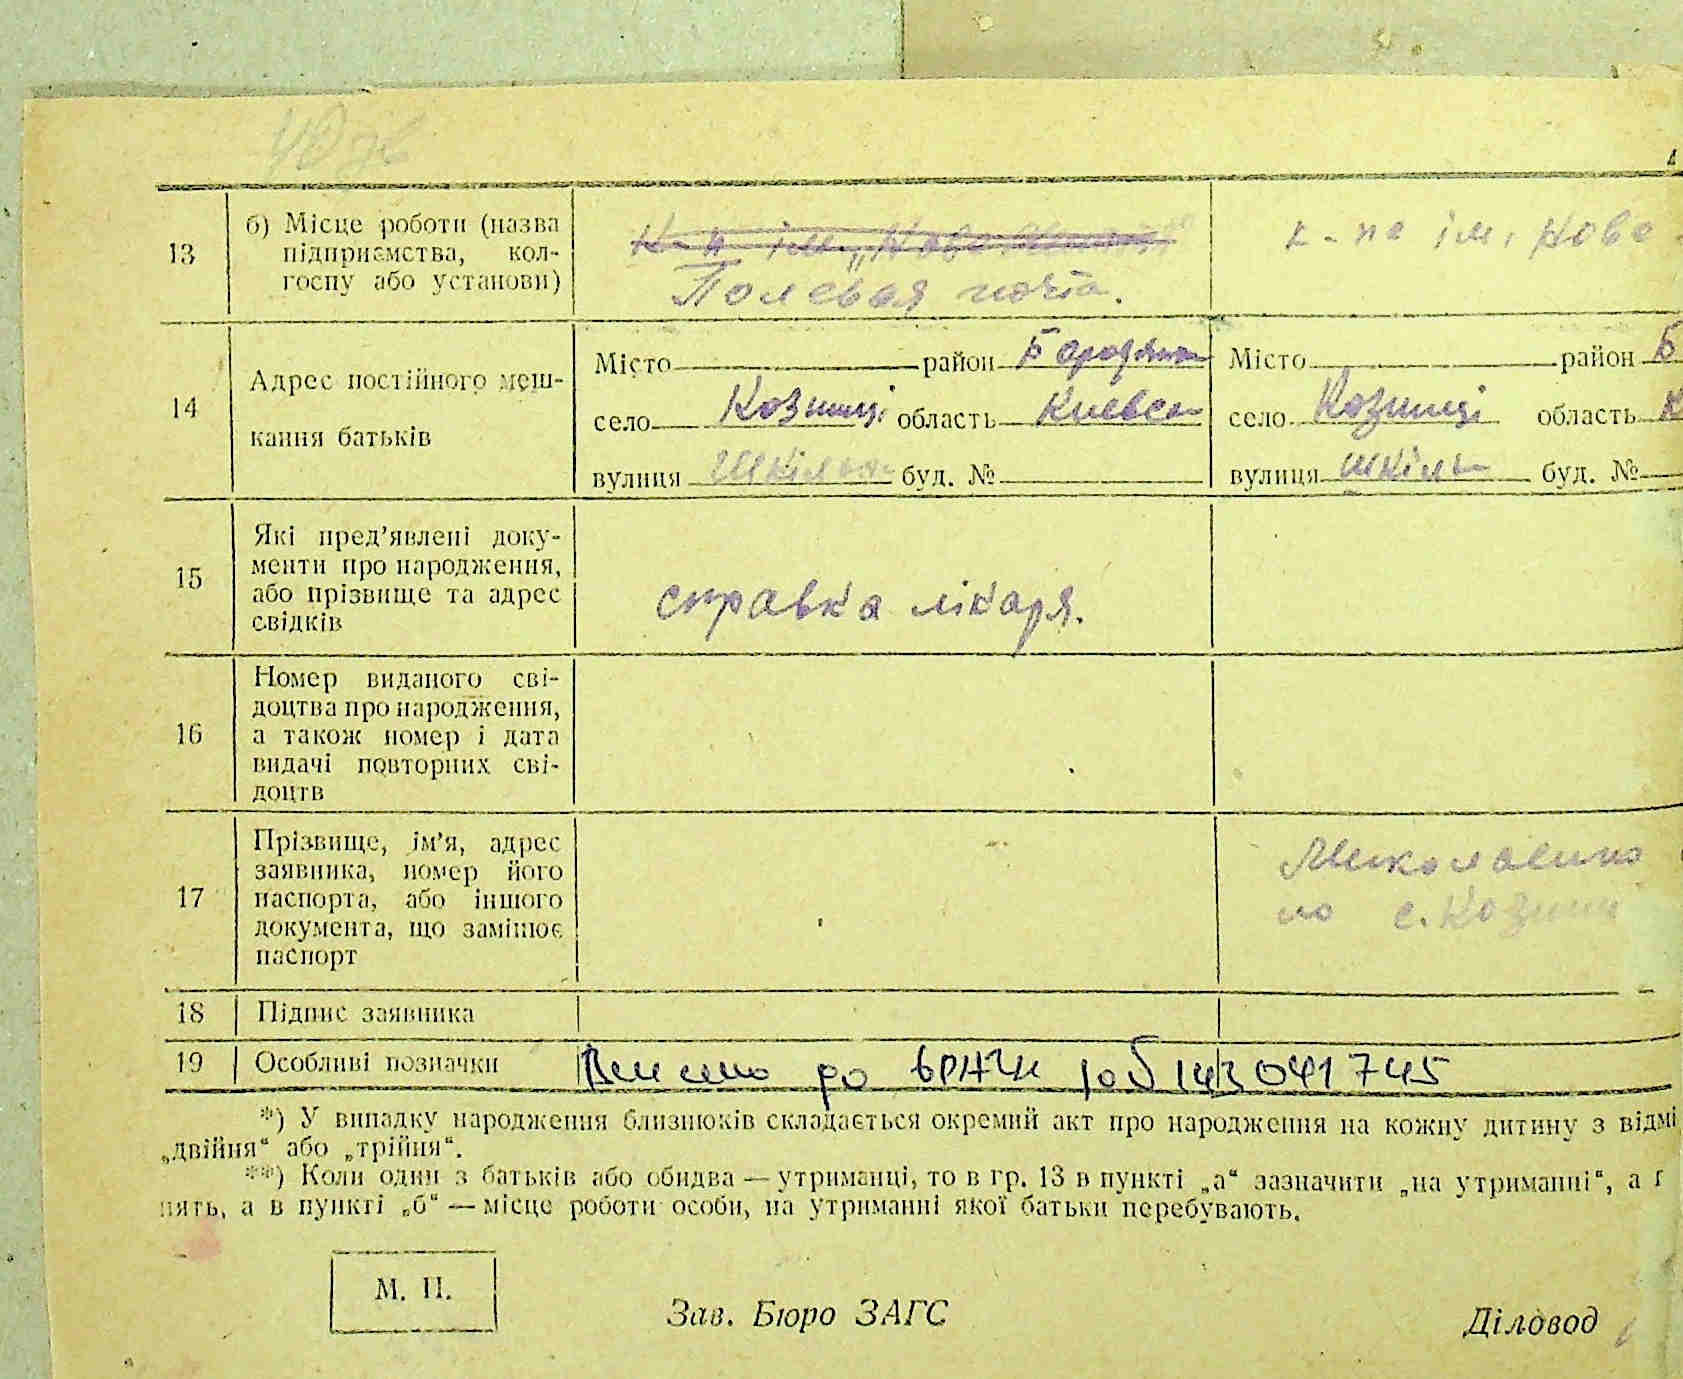 13 б) Місце роботи (назва підприємства, кол-
госпу або установи)
К-п ім. „Нове
Полевая почта.
к-пе ім. Нове
14 Адрес постійного меш-
кання батьків
Місто район Бородянк
село Козинці область Киевск
вулиця Шкільн буд. №
Місто район Б
село Козинці область К
вулиця Шкільн буд. №
15 Які пред’явлені доку-
менти про народження,
або прізвище та адрес
свідків
справка лікаря.
16 Номер виданого сві-
доцтва про народження,
а також номер і дата
видачі повторних сві-
доцтв
17 Прізвище, ім’я, адрес
заявника, номер його
паспорта, або іншого
документа, що замінює
паспорт
с. Козинц
18 Підпис заявника
19 Особливі позначки
Внесено до 143041745
*) У випадку народження близнюків складається окремий акт про народження на кожну дитину з відмі
„двійня“ або „трійня“.
**) Коли один з батьків або обидва — утриманці, то в гр. 13 в пункті „а“ зазначити „на утриманні“, а г
нять, а в пункті „б“ — місце роботи особи, на утриманні якої батьки перебувають.
М. П.
Зав. Бюро ЗАГС
Діловод